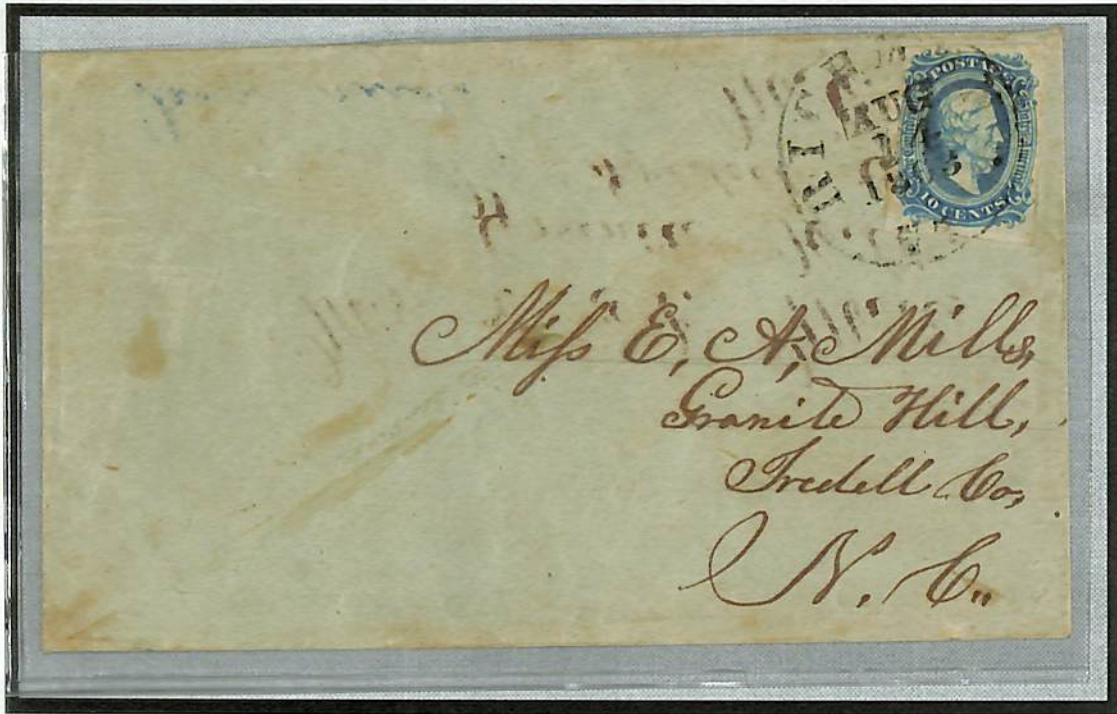 RICHMOND
AUG
VA.
POSTAGE
10 CENTS
Miſs E, A, Mills,
Granite Hill,
Iredell Co,
N. C.,